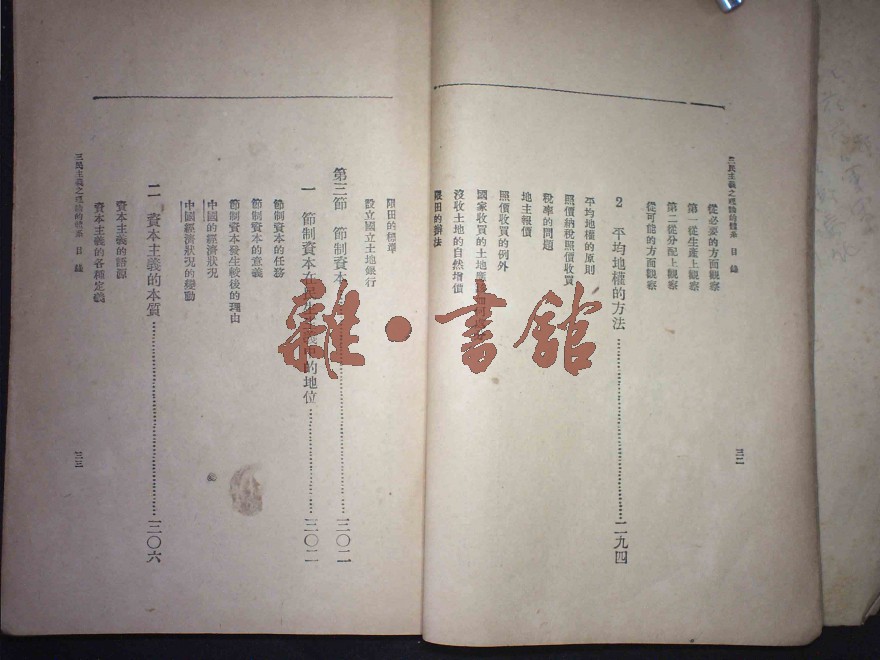 三民主義之理論的體系 目錄
從必要的方面觀察
第一從生產上觀察
第二從分配上觀察
從可能的方面觀察
2 平均地權的方法……二九四
平均地權的原則
照價納稅照價收買
稅率的問題
地主報價
照價收買的例外
國家收買的土地
沒收土地的自然增價
限田的辦法
三二
限田的標準
設立國立土地銀行
第三節 節制資本……三〇二
一 節制資本在民生主義的地位……三〇二
節制資本的任務
節制資本的意義
節制資本發生較後的理由
中國的經濟狀況
中國經濟狀況的變動
二 資本主義的本質……三〇六
資本主義的語源
資本主義的各種定義
三民主義之理論的體系 目錄
三三
雜·書館